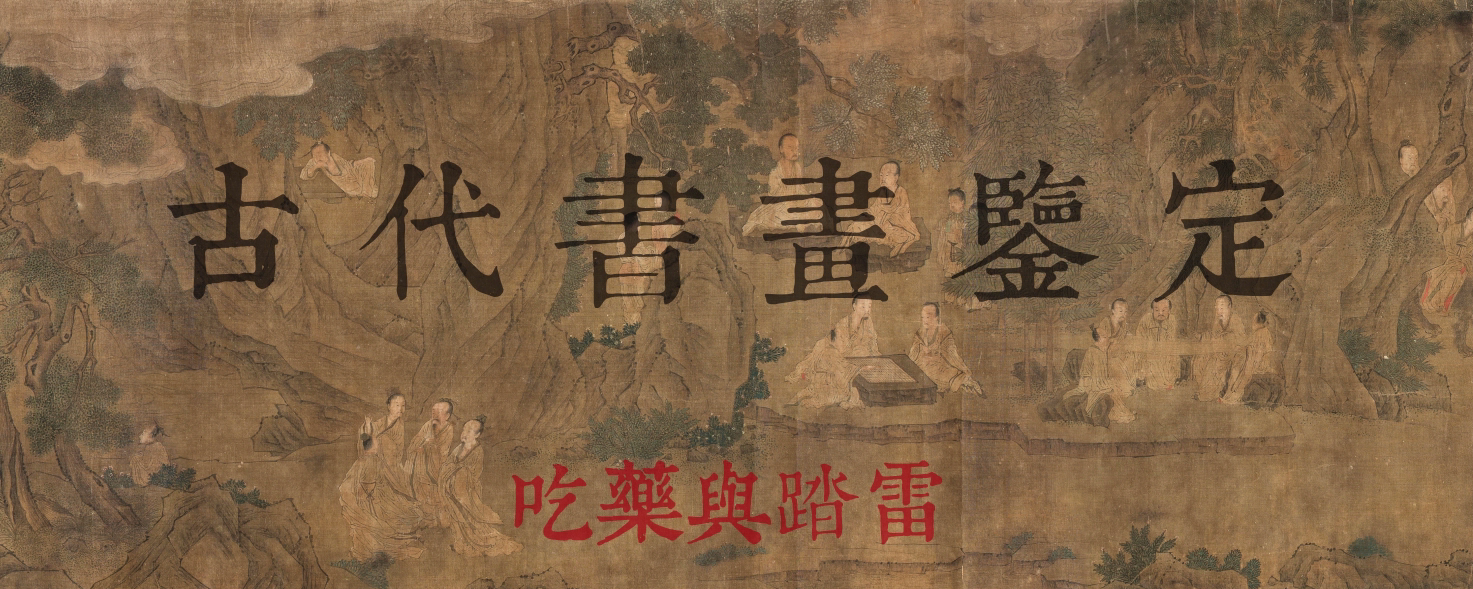 古代書畫鑒定
吃藥與踏雷